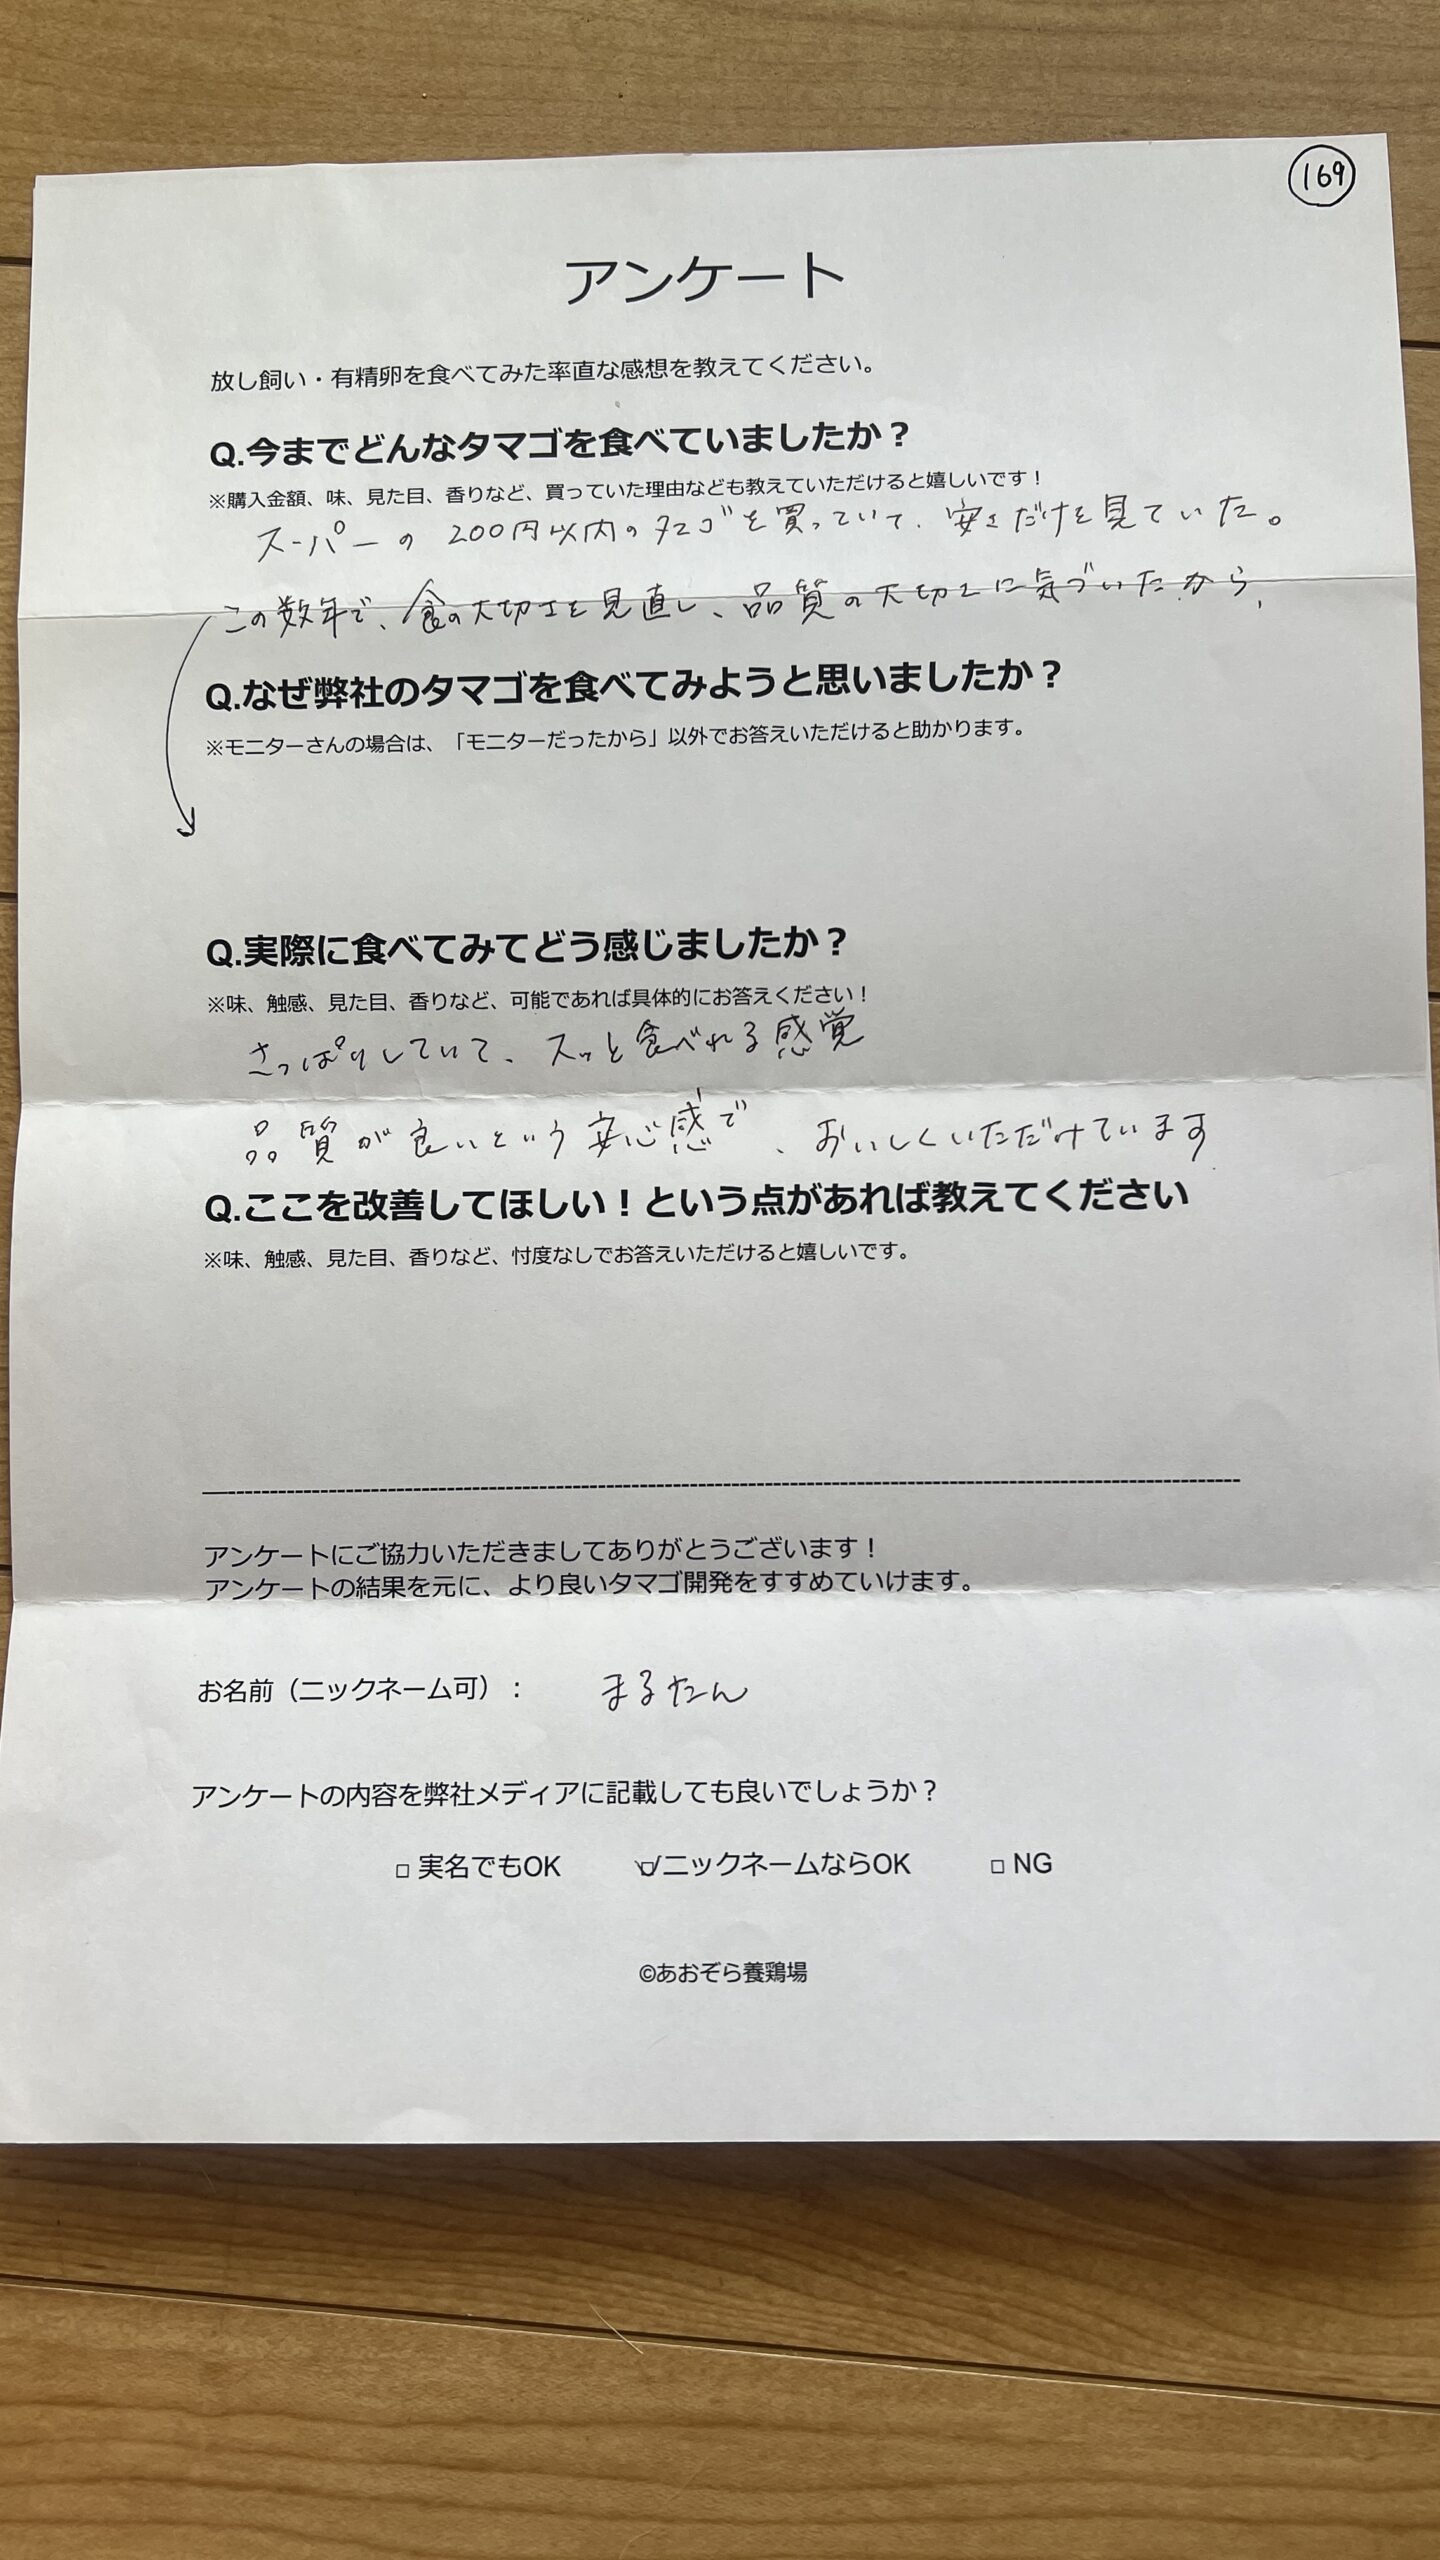 169
アンケート
放し飼い・有精卵を食べてみた率直な感想を教えてください。
Q.今までどんなタマゴを食べていましたか？
※購入金額、味、見た目、香りなど、買っていた理由なども教えていただけると嬉しいです！
スーパーの200円以内のタマゴを買っていて、安さだけを見ていた。
この数年で、食の大切さを見直し、品質の大切さに気づいたから、
Q.なぜ弊社のタマゴを食べてみようと思いましたか？
※モニターさんの場合は、「モニターだったから」以外でお答えいただけると助かります。
Q.実際に食べてみてどう感じましたか？
※味、触感、見た目、香りなど、可能であれば具体的にお答えください！
さっぱりしていて、スッと食べれる感覚
品質が良いという安心感で、おいしくいただけています
Q.ここを改善してほしい！という点があれば教えてください
※味、触感、見た目、香りなど、忖度なしでお答えいただけると嬉しいです。
アンケートにご協力いただきましてありがとうございます！
アンケートの結果を元に、より良いタマゴ開発をすすめていけます。
お名前（ニックネーム可）： まるたん
アンケートの内容を弊社メディアに記載しても良いでしょうか？
□ 実名でもOK ☑ニックネームならOK □ NG
©あおぞら養鶏場